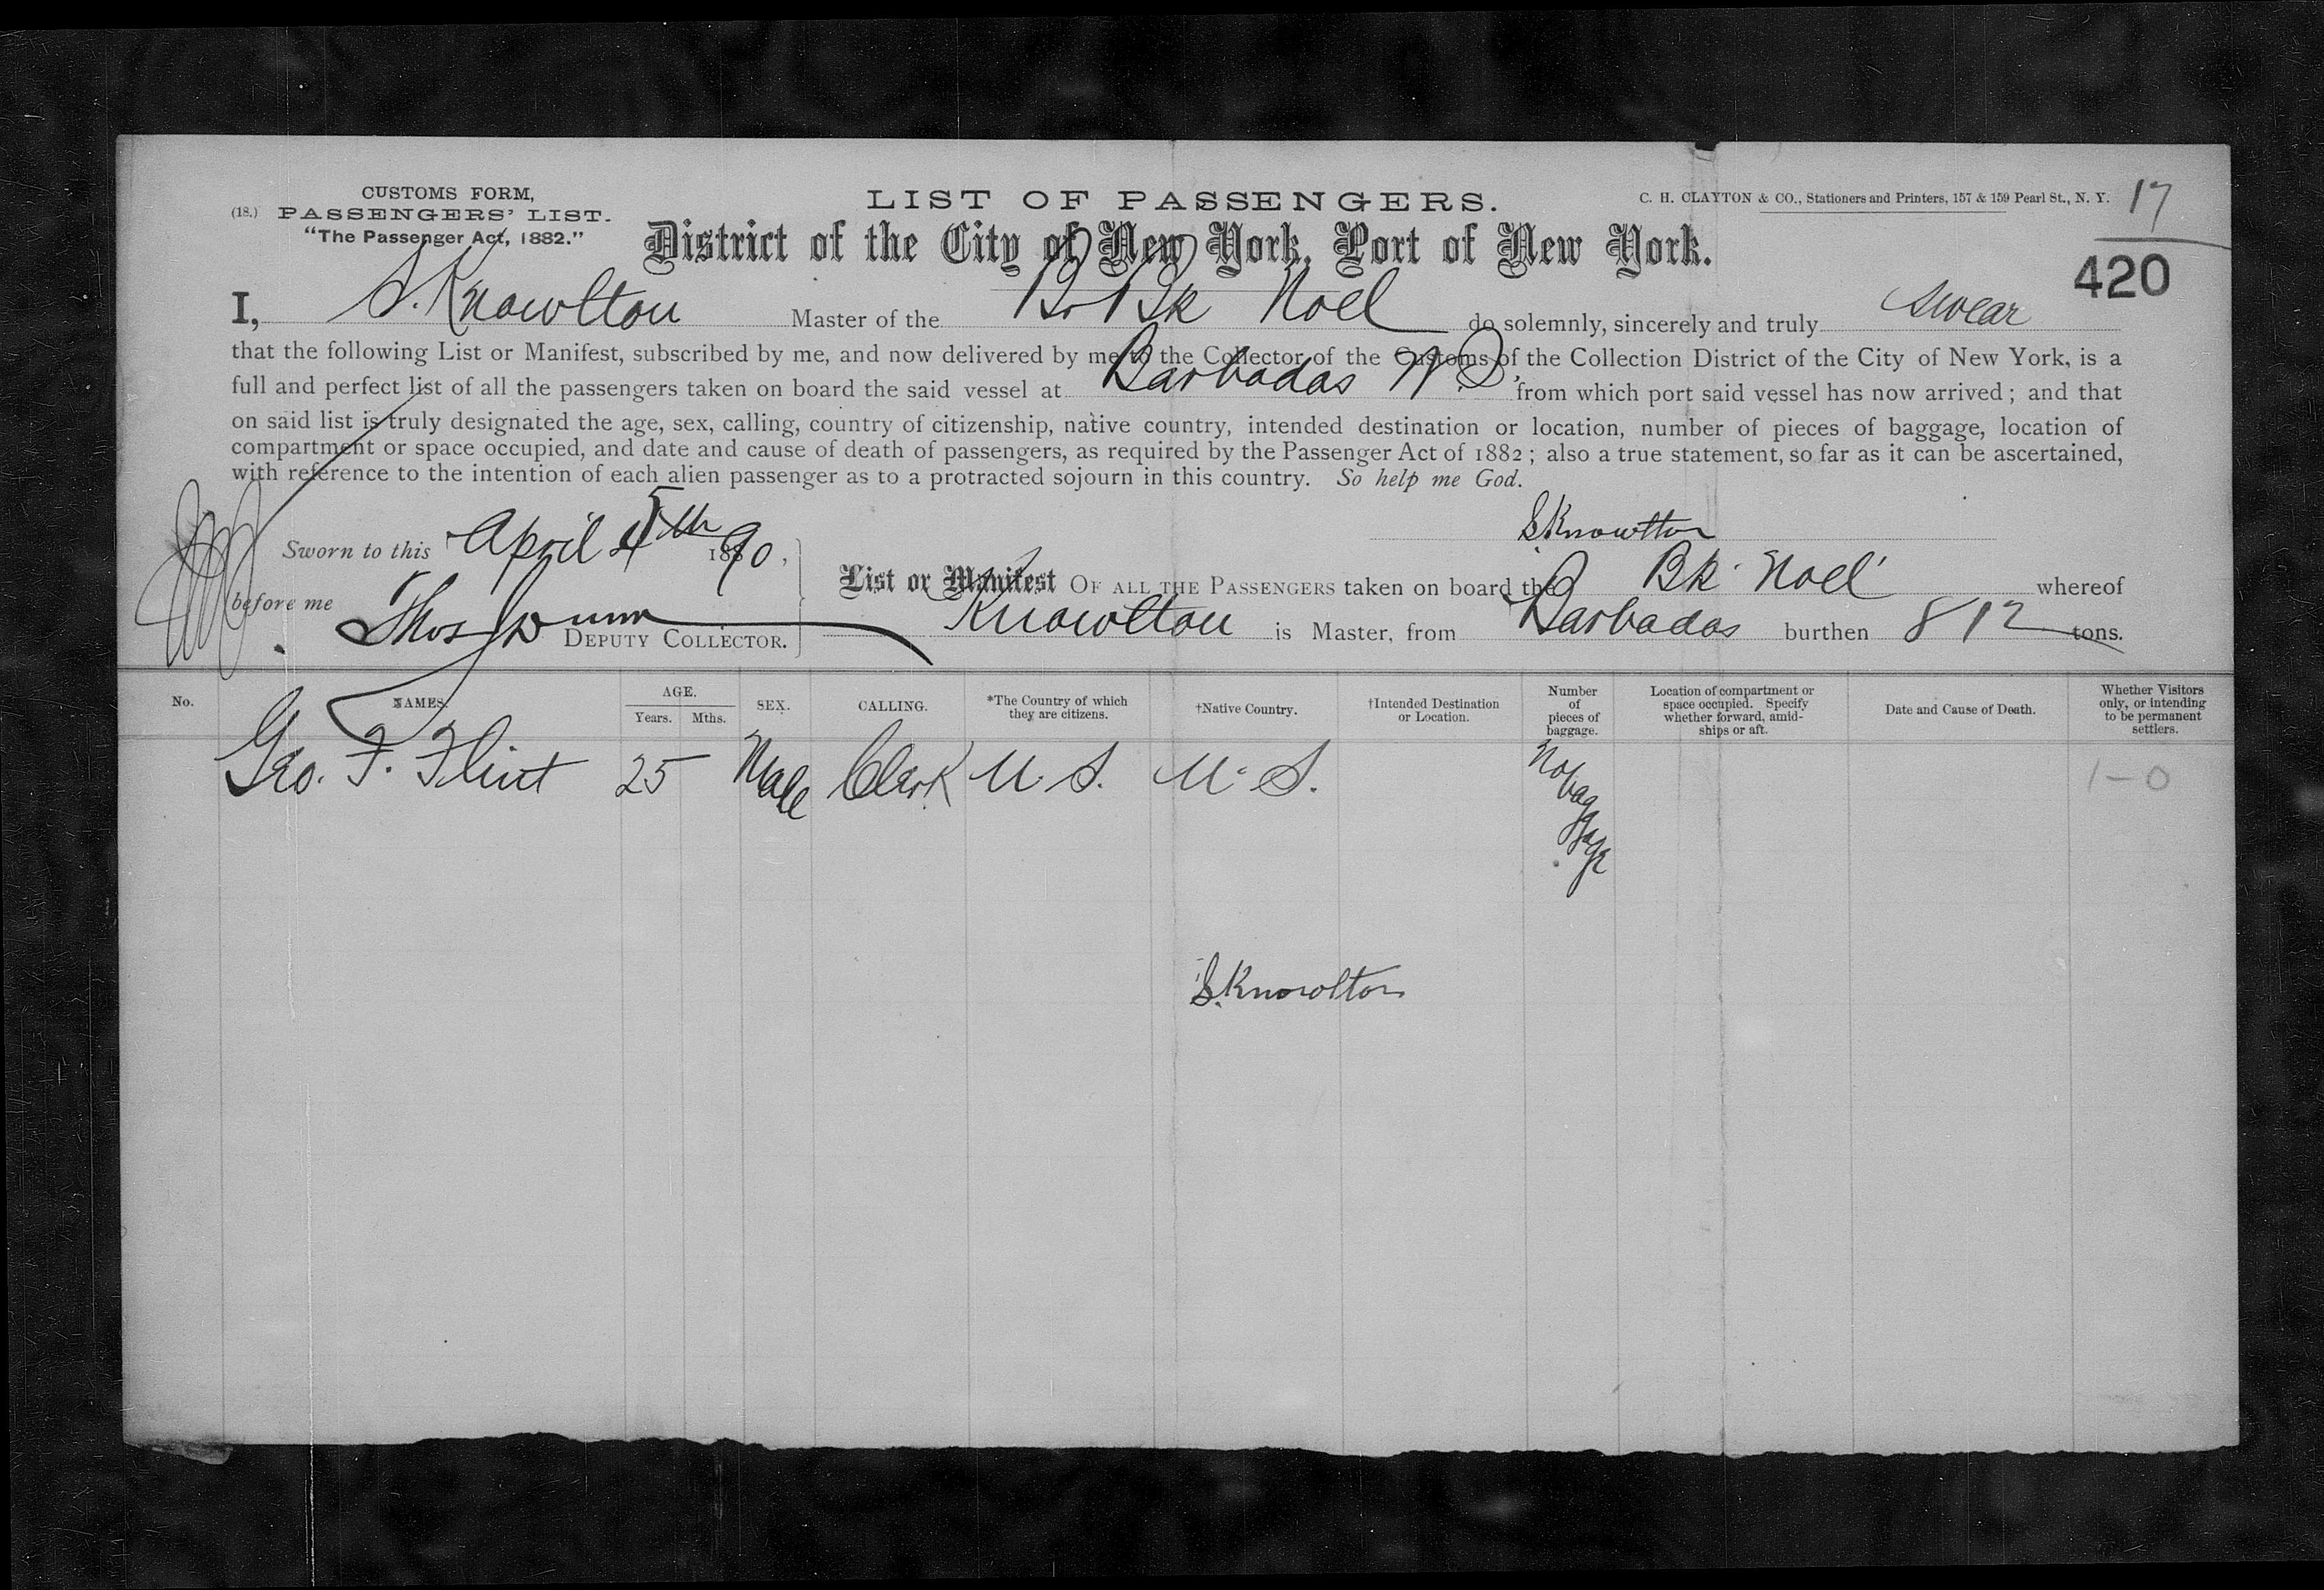 CUSTOMS FORM,
(18.) PASSENGERS' LIST.
"The Passenger Act, 1882."
LIST OF PASSENGERS.
C. H. CLAYTON & CO., Stationers and Printers, 157 & 159 Pearl St., N. Y.
17
District of the City of New York, Port of New York.
420
I, S. Knowlton Master of the Br Bk Noel do solemnly, sincerely and truly swear
that the following List or Manifest, subscribed by me, and now delivered by me to the Collector of the Customs of the Collection District of the City of New York, is a
full and perfect list of all the passengers taken on board the said vessel at Barbadas W.I. from which port said vessel has now arrived; and that
on said list is truly designated the age, sex, calling, country of citizenship, native country, intended destination or location, number of pieces of baggage, location of
compartment or space occupied, and date and cause of death of passengers, as required by the Passenger Act of 1882; also a true statement, so far as it can be ascertained,
with reference to the intention of each alien passenger as to a protracted sojourn in this country. So help me God.
S. Knowlton
Sworn to this April 5th 1890,
before me Thos Dunn DEPUTY COLLECTOR.
List or Manifest OF ALL THE PASSENGERS taken on board the Bk Noel whereof
S Knowlton is Master, from Barbados burthen 812 tons.
No. NAMES. AGE. Years. Mths. SEX. CALLING. *The Country of which they are citizens. †Native Country. †Intended Destination or Location. Number of pieces of baggage. Location of compartment or space occupied. Specify whether forward, amid-ships or aft. Date and Cause of Death. Whether Visitors only, or intending to be permanent settlers.
Geo. F. Flint 25 Male Clerk U.S. U.S. No baggage 1-0
S. Knowlton